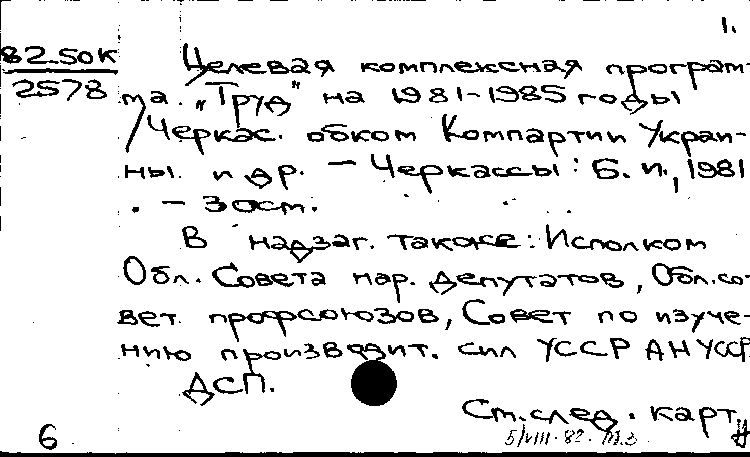 1.
82.50К
2578
Целевая комплексная програм-
ма. „Труд" на 1981-1985 годы
/Черкас. обком Компартии Украи-
ны и др. — Черкассы: Б. и., 1981
. — 30 ст.
В надзаг. также: Исполком
Обл. Совета нар. депутатов, Обл. со-
вет. профсоюзов, Совет по изуче-
нию производит. сил УССР АН УССР
ДСП.
См. след. карт.
6
5/VIII-82.